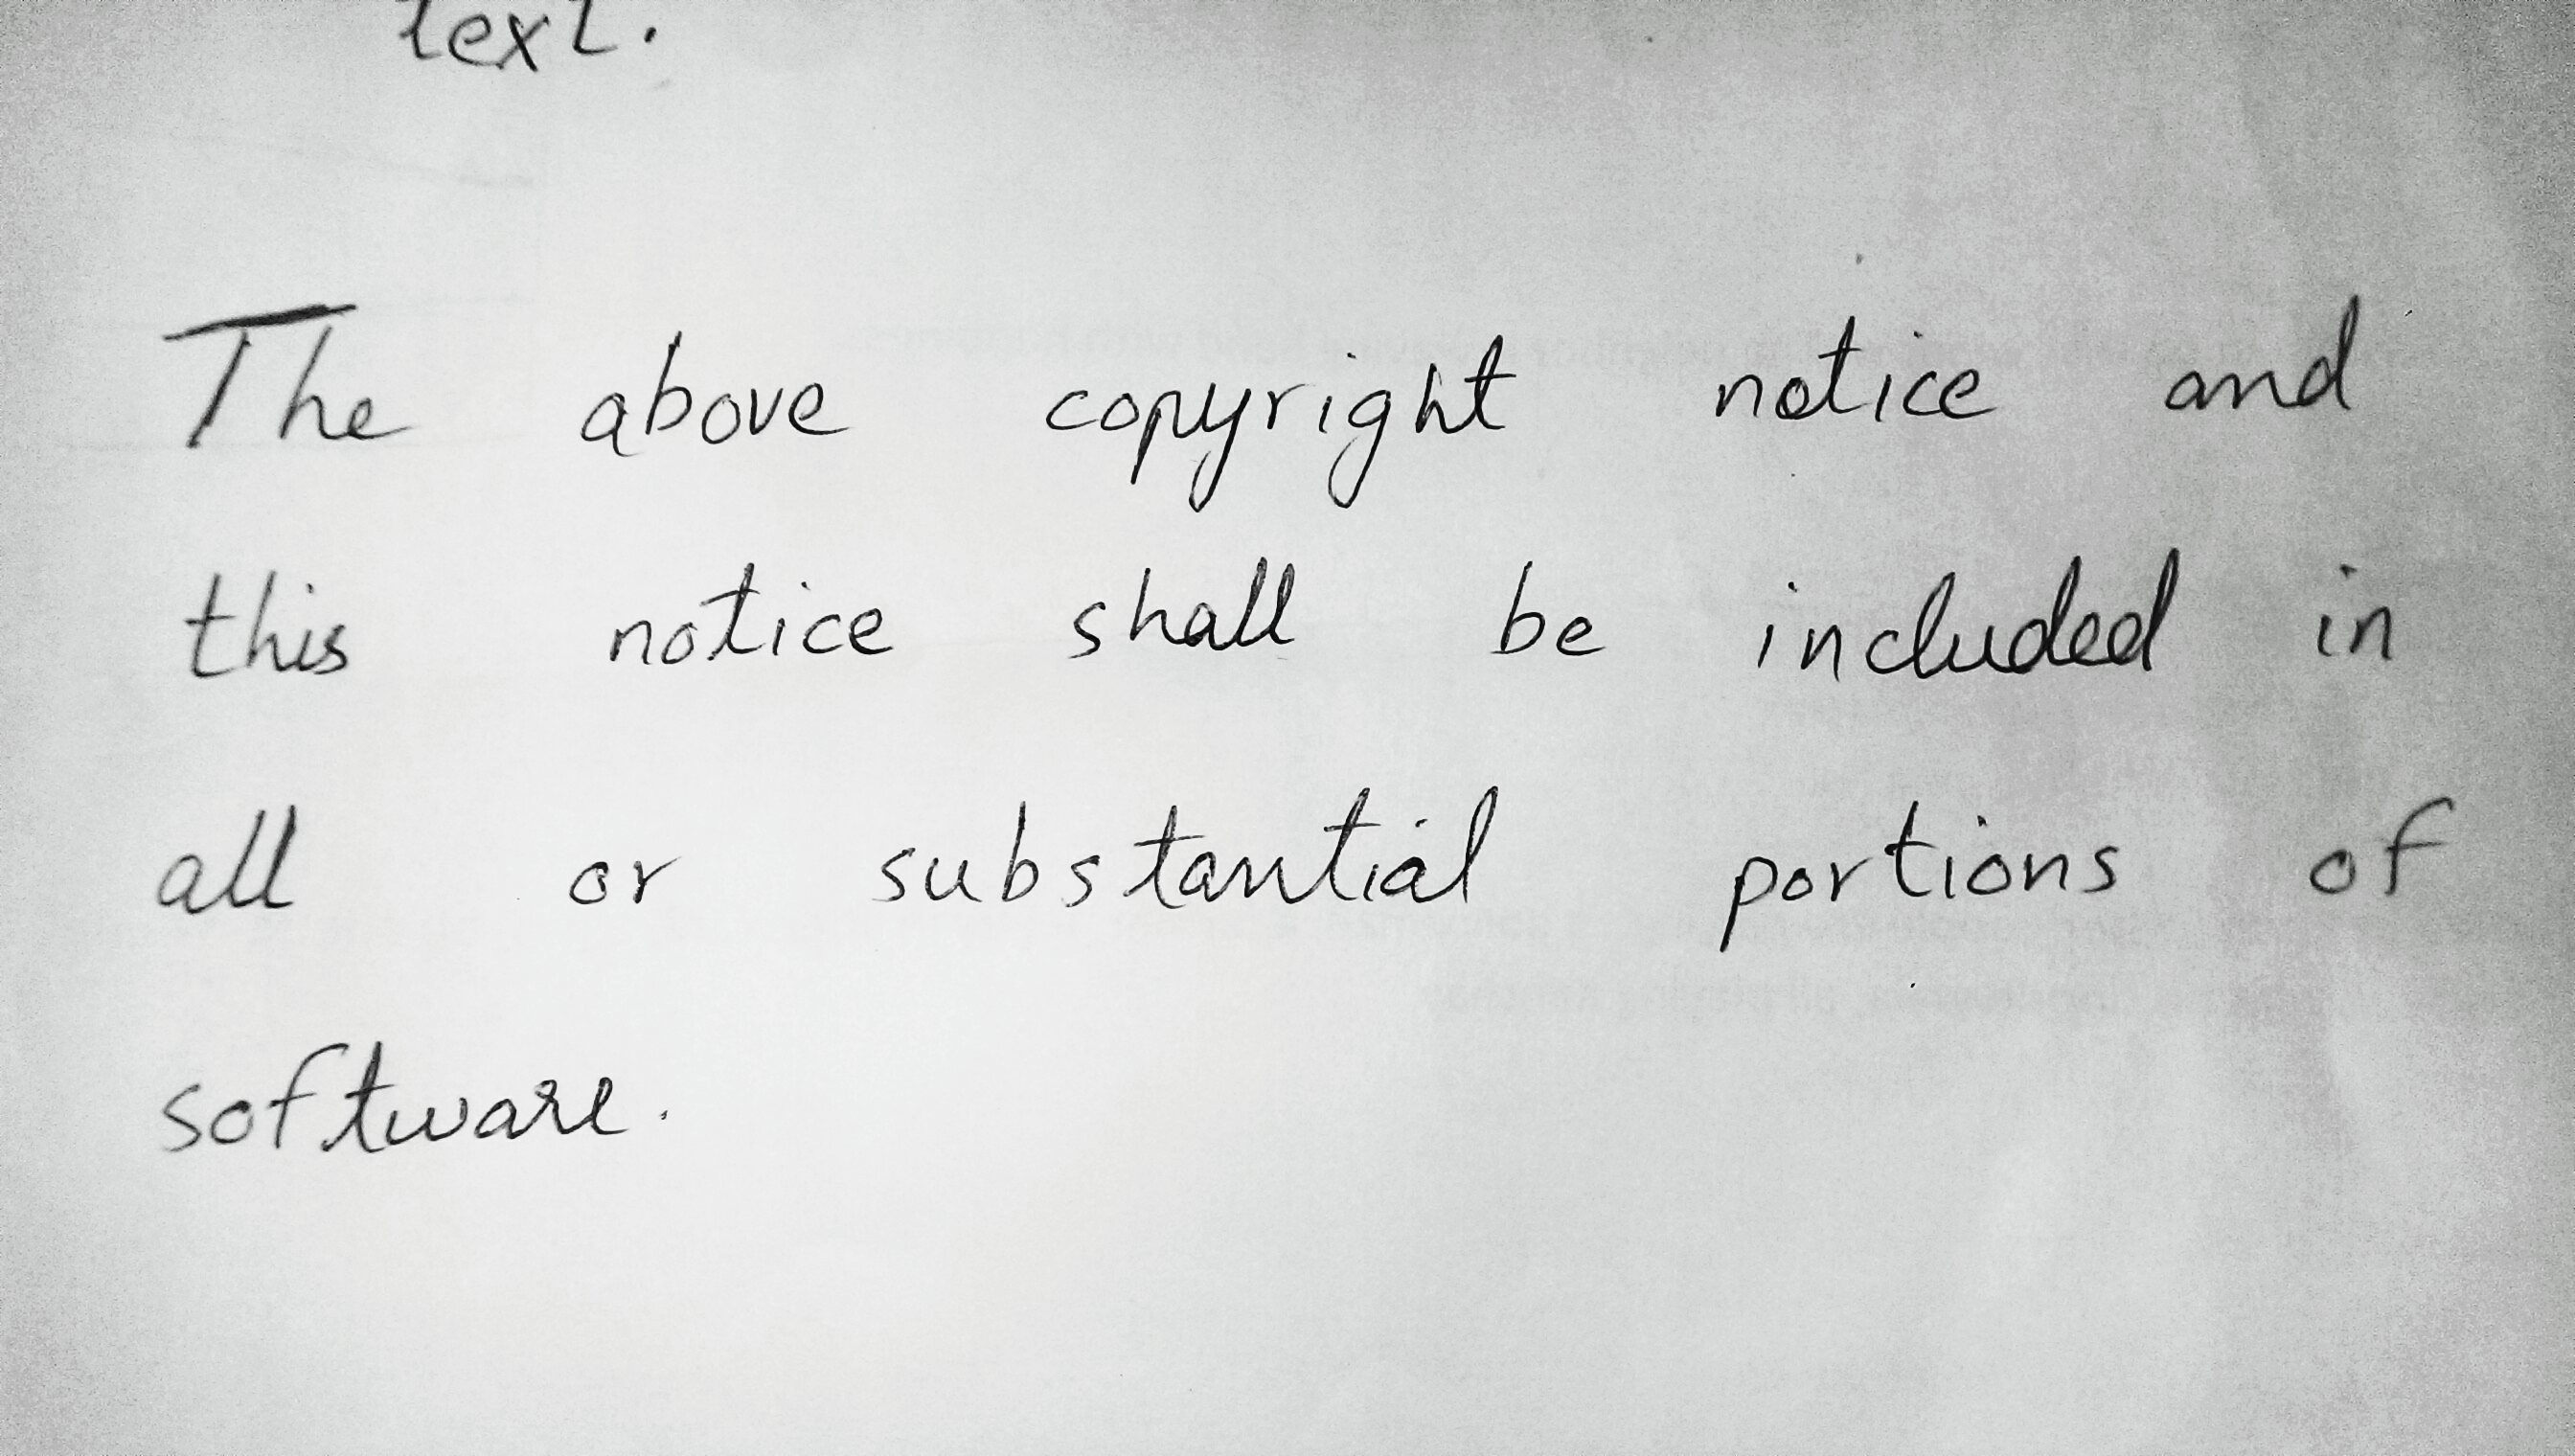 text.
The above copyright notice and
this notice shall be included in
all or substantial portions of
software.